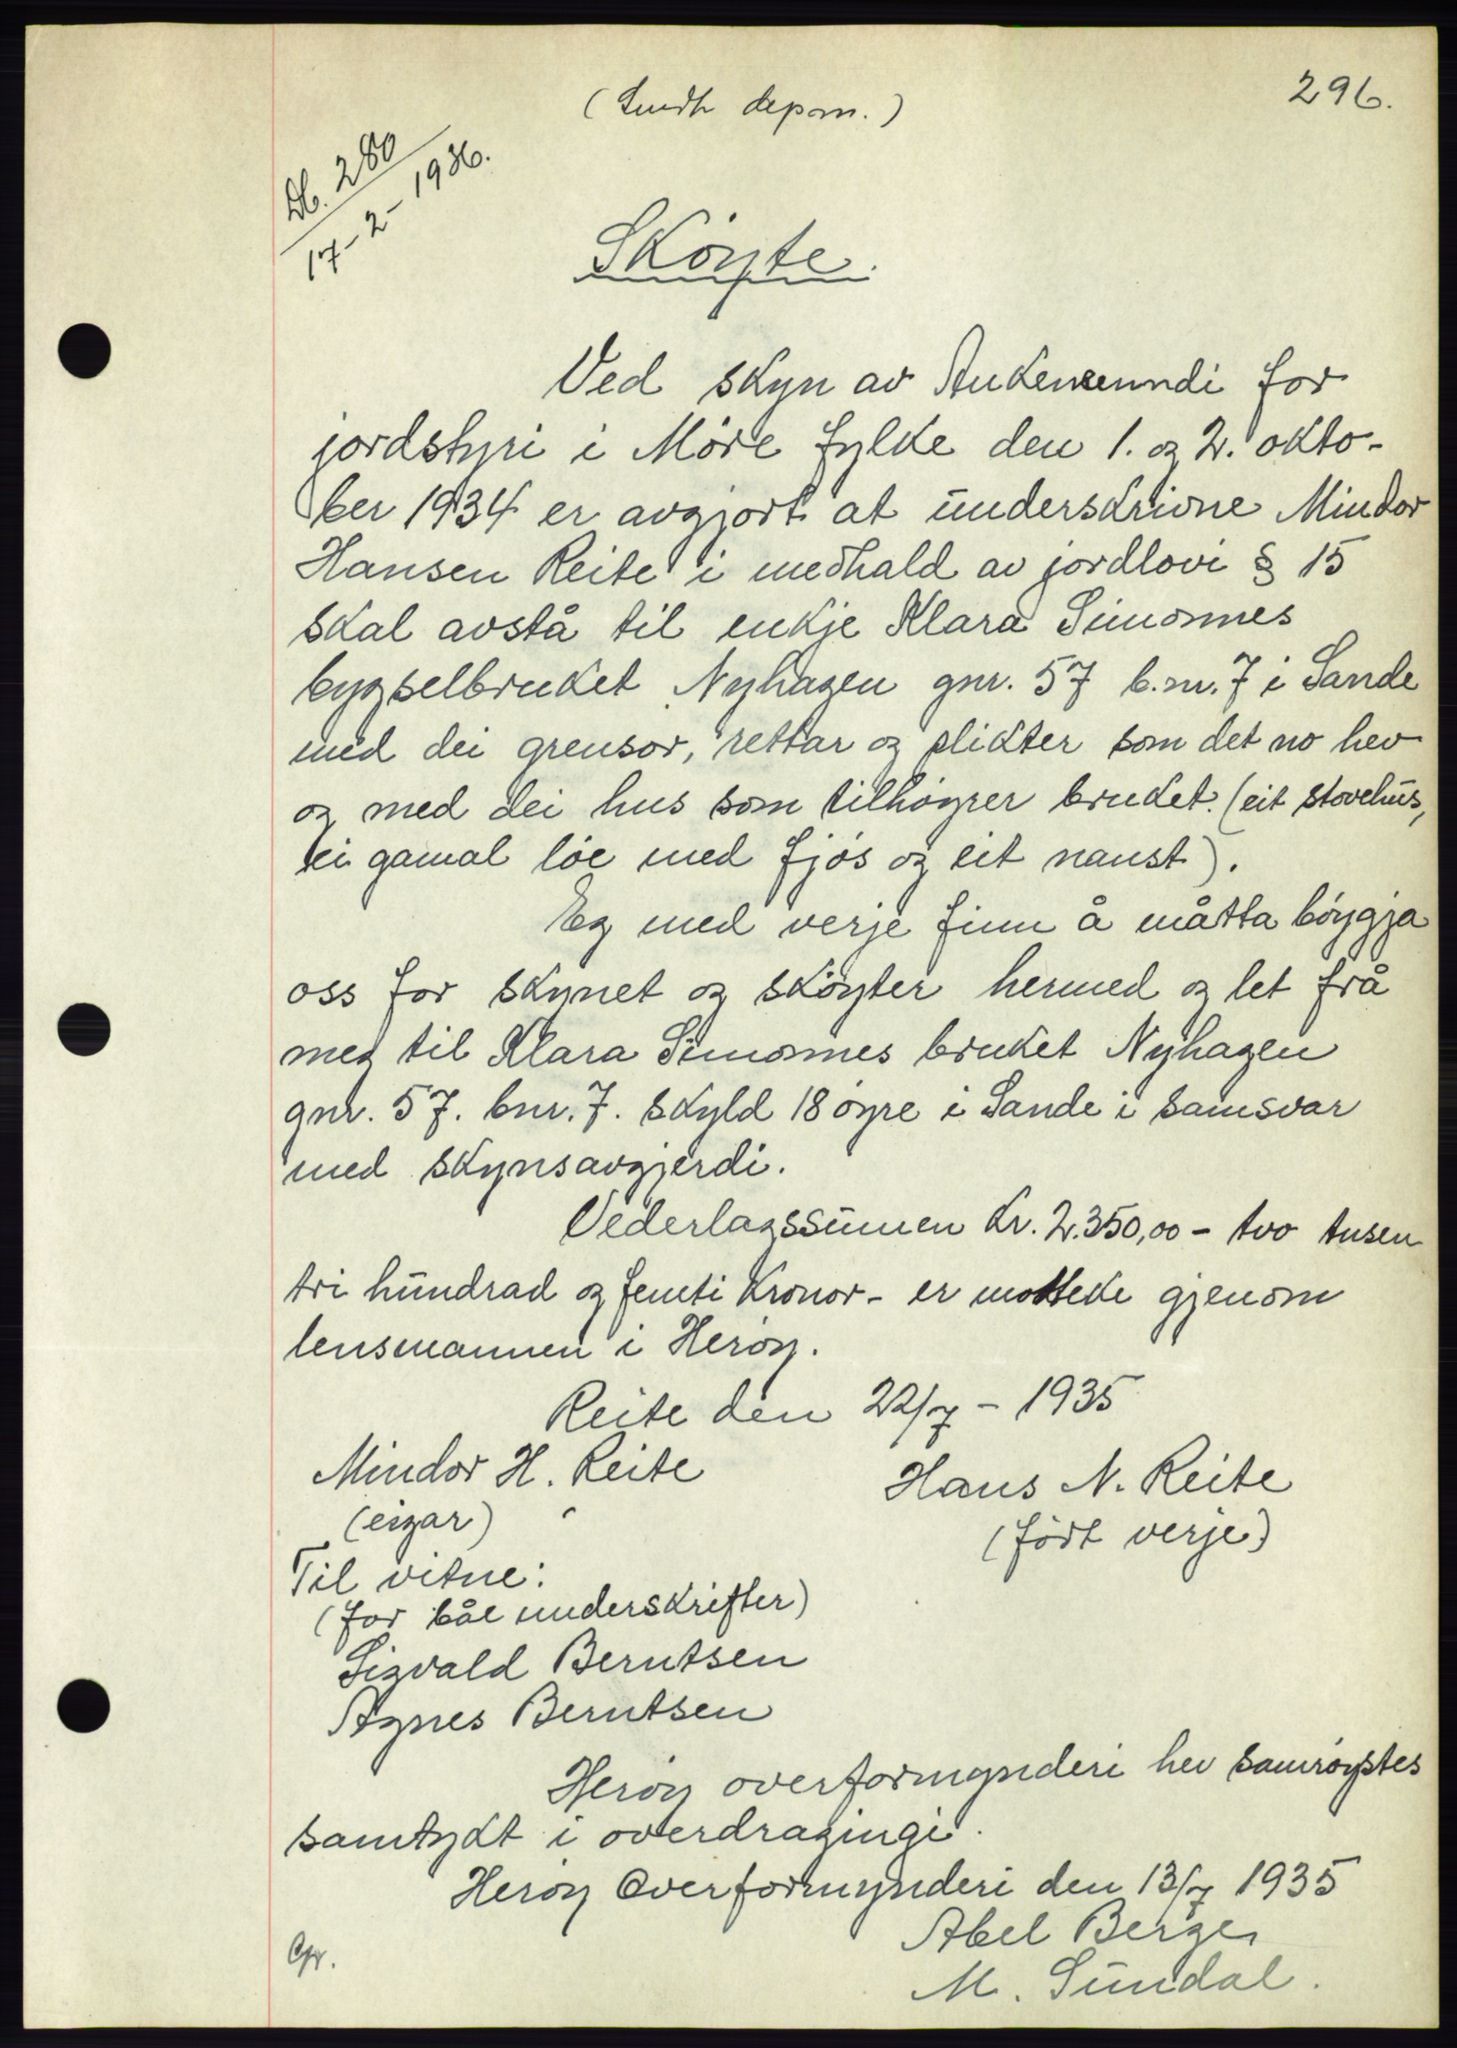 296.
( depon.)
Db. 280
17-2-1936.
Sköyte.
Ved skyn av Ankenemndi for
jordstyri i Möre fylke den 1. og 2. okto-
ber 1934 er avgjort at underskrivne Mindor
Hansen Reite i medhald av jordlovi § 15
skal avstå til enkje Klara Simonnes
bygselbruket Nyhagen gnr. 57 b.nr. 7 i Sande
med dei grensor, rettar og plikter som det no hev
og med dei hus som tilhöyrer bruket. (eit stovehus,
ei gamal löe med fjös og eit naust).
Eg med verje finn å måtta böygja
oss for skynet og sköyter hermed og let frå
meg til Klara Simonnes bruket Nyhagen
gnr. 57. bnr. 7. skyld 18 öyre i Sande i samsvar
med skynsavgjerdi.
Vederlagssumen kr. 2.350,00 - tvo tusen
tri hundrad og femti kronor - er motteke gjenom
lensmannen i Heröy.
Reite den 22/7 - 1935
Mindor H. Reite
(eigar)
Hans N. Reite
(födt verje)
Til vitne:
(for båe underskrifter)
Sigvald Berntsen
Agnes Berntsen
Heröy overformynderi hev samröystes
samtykt i overdragingi.
Heröy Overformynderi den 13/7 1935
Abel Berge,
M. Sundal.